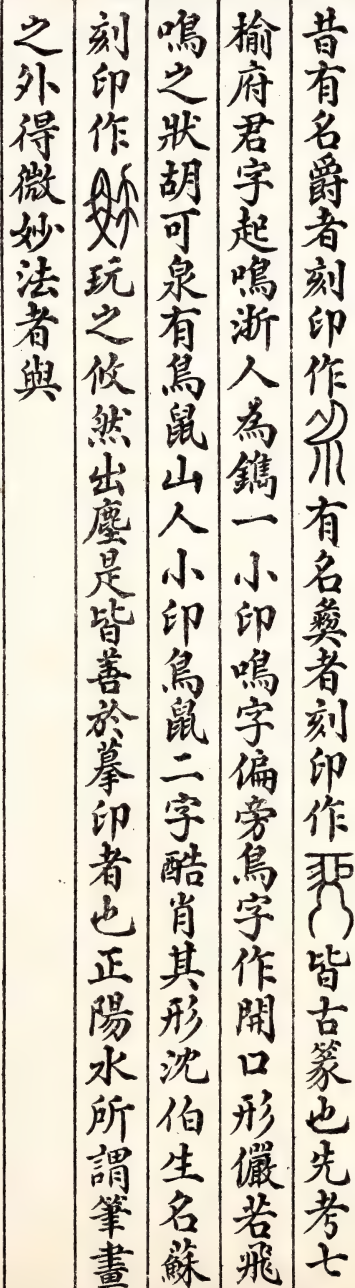 昔有名爵者刻印作有名彝者刻印作皆古篆也先考七
榆府君字起鳴浙人為鐫一小印鳴字偏旁鳥字作開口形儼若飛
鳴之狀胡可泉有鳥鼠山人小印鳥鼠二字酷肖其形沈伯生名蘇
刻印作玩之攸然出塵是皆善於摹印者也正陽水所謂筆畫
之外得微妙法者與